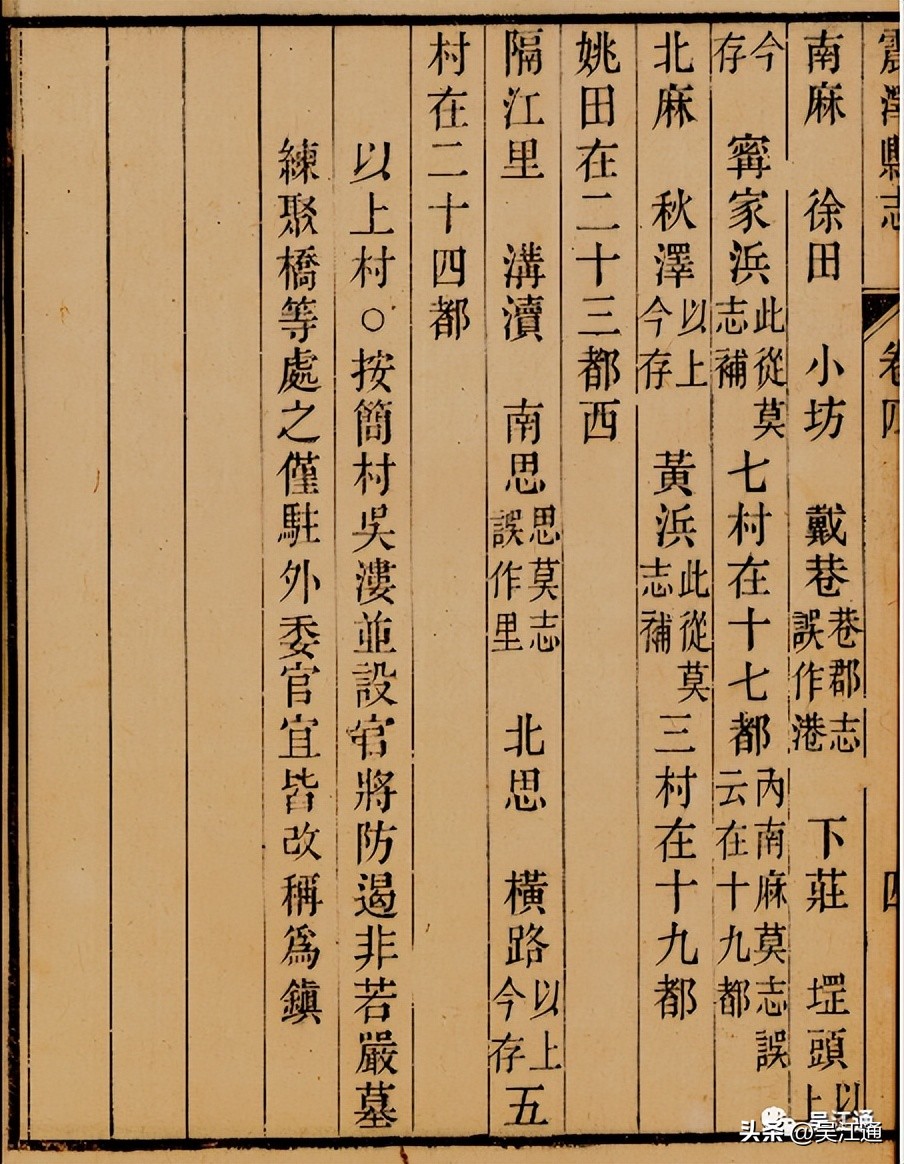 震澤縣志 卷四 四
南麻 徐田 小坊 戴巷巷郡志誤作港 下莊 堽頭以上
今存 寗家浜此從莫志補 七村在十七都內南麻莫志誤云在十九都
北麻 秋澤以上今存 黃浜此從莫志補 三村在十九都
姚田在二十三都西
隔江里 溝瀆 南思思莫志誤作里 北思 橫路以上今存 五
村在二十四都
以上村○按簡村吳漊並設官將防遏非若嚴墓
練聚橋等處之僅駐外委官宜皆改稱爲鎮
吳江通
头条 @吴江通